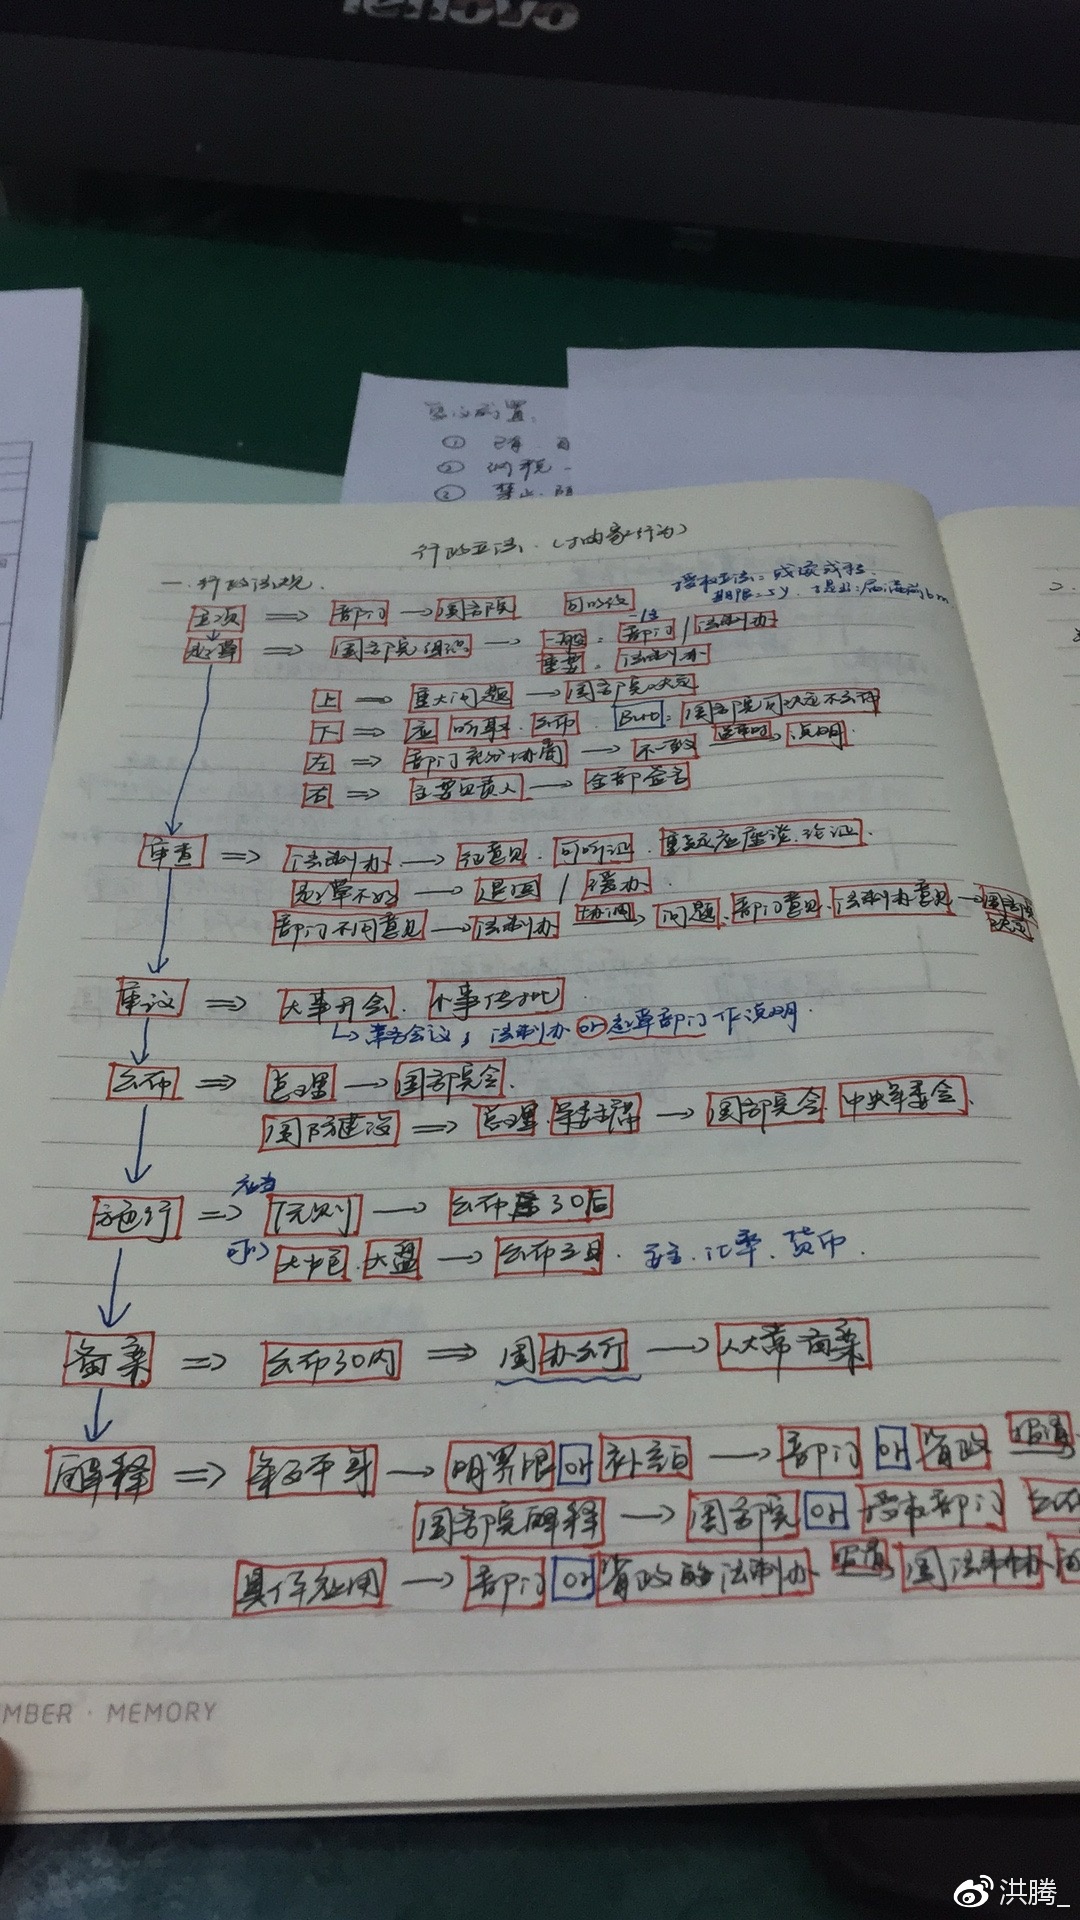 lenovo
① 已有
禁止
行政立法.(抽象行为)
一.行政法规.
授权立法:
期限=5y.
立项 ⇒ 部门 → 国务院
起草 ⇒ 国务院组织 → 一般: 部门 / 法制办
重要: 法制办
上 ⇒ 重大问题 → 国务院决定
下 ⇒ 应 听取. 公布. But: 国务院可决定不公布
左 ⇒ 部门充分协商 → 不一致 说明.
右 ⇒ 主要负责人 → 全部签名
审查 ⇒ 法制办 → 征意见. 可听证. 座谈.论证.
起草不好 → 退回 / 缓办.
部门不同意见 → 法制办 协调 → 问题.部门意见.法制办意见 → 国务院
决定
审议 ⇒ 大事开会. 小事传批.
↳ 常务会议; 法制办 or 起草部门作说明.
公布 ⇒ 总理 → 国务院令.
国防建设 ⇒ 总理.军委主席 → 国务院令.中央军委令.
施行 ⇒ 应当 原则 → 公布 30后
可以 → 公布之日. 汇率.货币.
备案 ⇒ 公布30内 ⇒ 国办公厅 → 人大常备案
解释 ⇒ → 明界限 or 补充 → 部门 or 省政
国务院解释 → 国务院 or 授权部门 公布
具体应用 → 部门 or 省政的法制办 国法制办
MBER · MEMORY
洪腾_